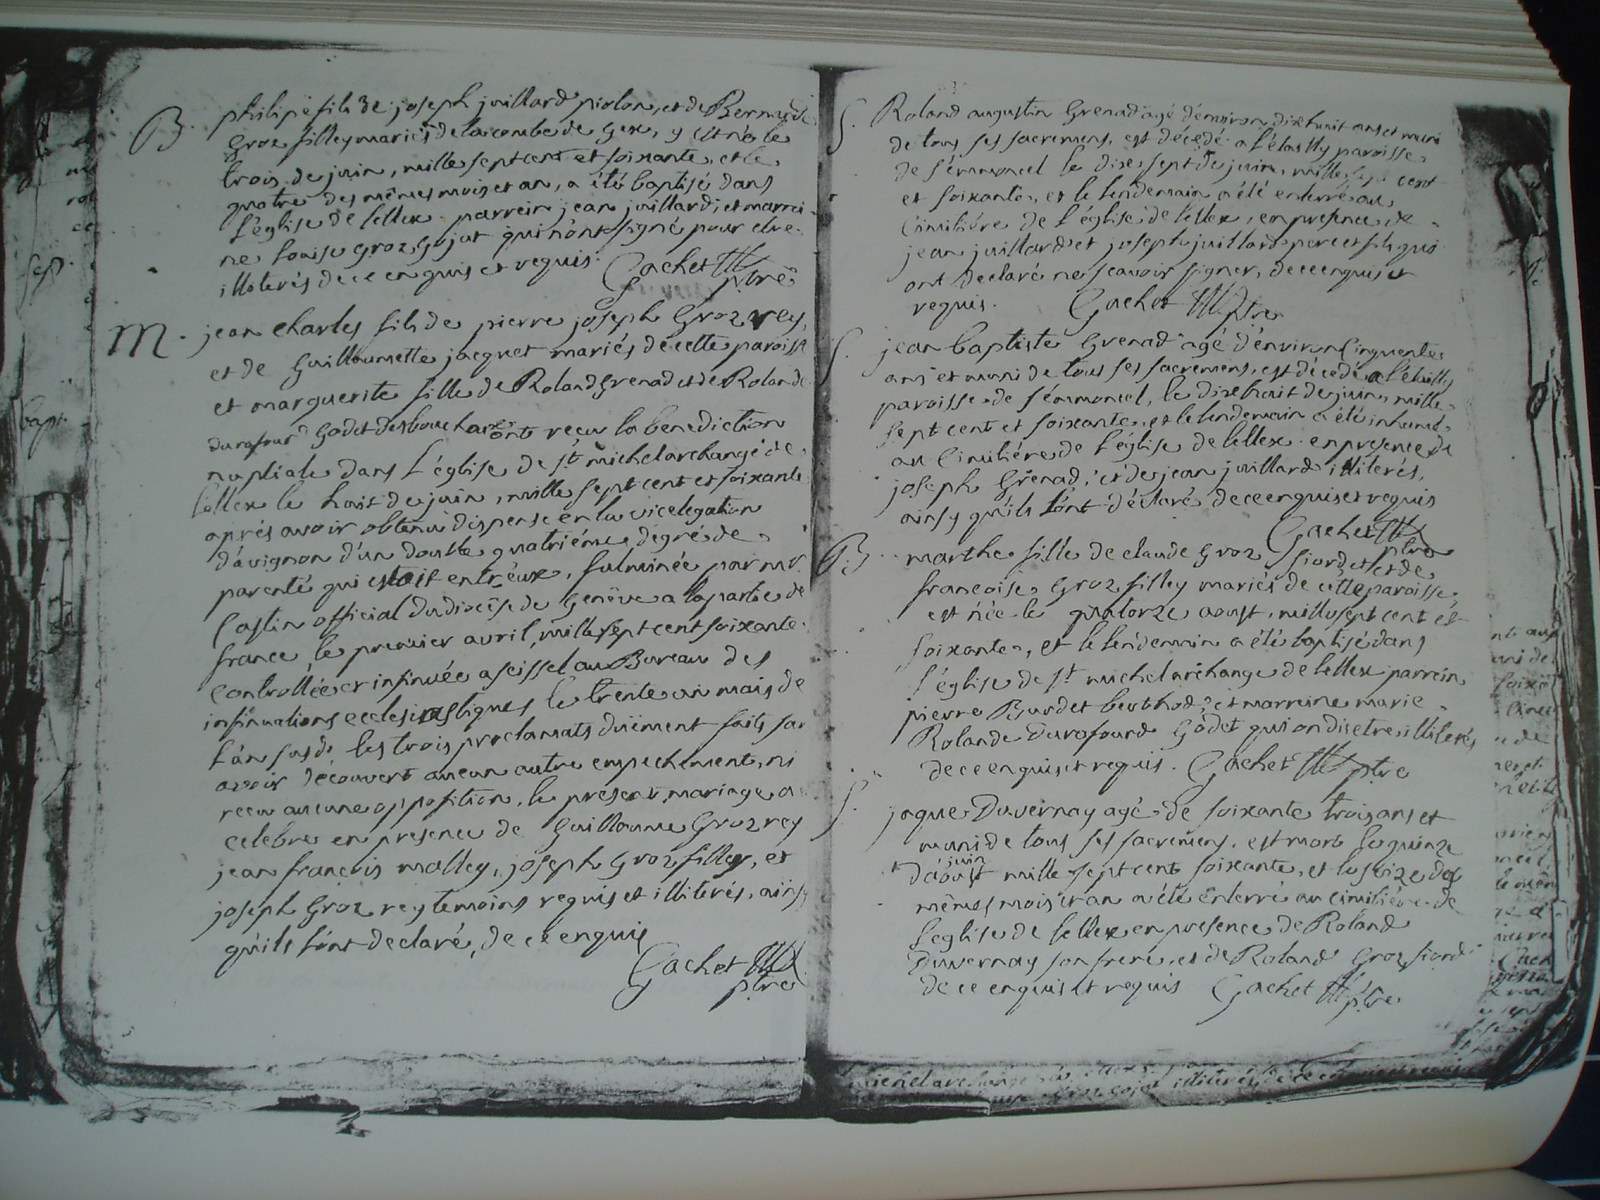 B. philipe fils de joseph juillard piolon, et de Bernarde
Groz filley mariés de la combe de Gex, y est né le
trois de juin, mille sept cent et soixante, et le
quatre des mêmes mois et an, a été baptisé dans
l'église de lellex parrein jean juillard, et marrei-
ne louise Groz Gojat qui n'ont signé pour etre
illiterés de ce enquis et requis. Gachet
ptre
M. jean charles fils de pierre joseph Groz rey,
et de Guilloumette jacquet mariés de cette paroisse
et marguerite fille de Roland Grenad et de Rolande
durafour Godet desbouchaux ont reçu la benediction
nuptiale dans l'église de st michel archange de
lellex le huit de juin, mille sept cent et soixante
aprés avoir obtenu dispense en la vicelegation
d'avignon d'un double quatriéme degré de
parenté qui estoit entr'eux, fulminée par mr
Castin official du diocèse de Genève a la partie de
france, le premier avril, mille sept cent soixante
controllée et insinuée a seissel au Bureau des
insinuations ecclesiastiques le trente un mais de
l'an susd. les trois proclamats duëment faits sans
avoir découvert aucun autre empechement, ni
reçu aucune opposition, le present mariage a
celebre en presence de Guillaume Groz rey
jean françois malley, joseph Groz filley, et
joseph Groz rey temoins requis et illiterés, ainsy
qu'ils l'ont declaré, de ce enquis
Gachet
ptre
S. Roland augustin Grenad agé d'environ dix huit ans et muni
de tous ses sacremens, est décédé a l'étailly paroisse
de s'emmoncel le dix sept de juin, mille sept cent
et soixante, et le lendemain a été enterré au
Cimitiére de l'église de lellex, en presence de
jean juillard et joseph juillard pere et fils qui
ont declaré ne sçavoir signer, de ce enquis et
requis. Gachet ptre
S. jean baptiste Grenad agé d'environ Cinquante
ans et muni de tous ses sacremens, est décédé a l'étailly
paroisse de s'emmoncel, le dix huit de juin, mille
sept cent et soixante, et le lendemain a été inhumé
au Cimitiére de l'église de lellex en presence de
joseph Grenad, et de jean juillard illiterés,
ainsy qu'ils l'ont déclaré de ce enquis et requis
Gachet
ptre
B. marthe fille de claude Groz fiordet et de
françoise Groz filley mariés de cette paroisse
est née le quatorze aoust, mille sept cent et
soixante, et le lendemain a été baptisé dans
l'église de st michel archange de lellex parrein
pierre Burdet berthod, et marreine marie
Rolande Durafourd Godet qui on dis etre illiterés
de ce enquis et requis. Gachet ptre
S. jaque Duvernay agé de soixante trois ans et
muni de tous ses sacremens, est mort le quinze
juin
d'aoust mille sept cent soixante, et le seize des
mêmes mois et an a été enterré au cimitiére de
l'eglise de lellex en presence de Roland
Duvernay son frere, et de Roland Groz fiord
de ce enquis et requis Gachet ptre